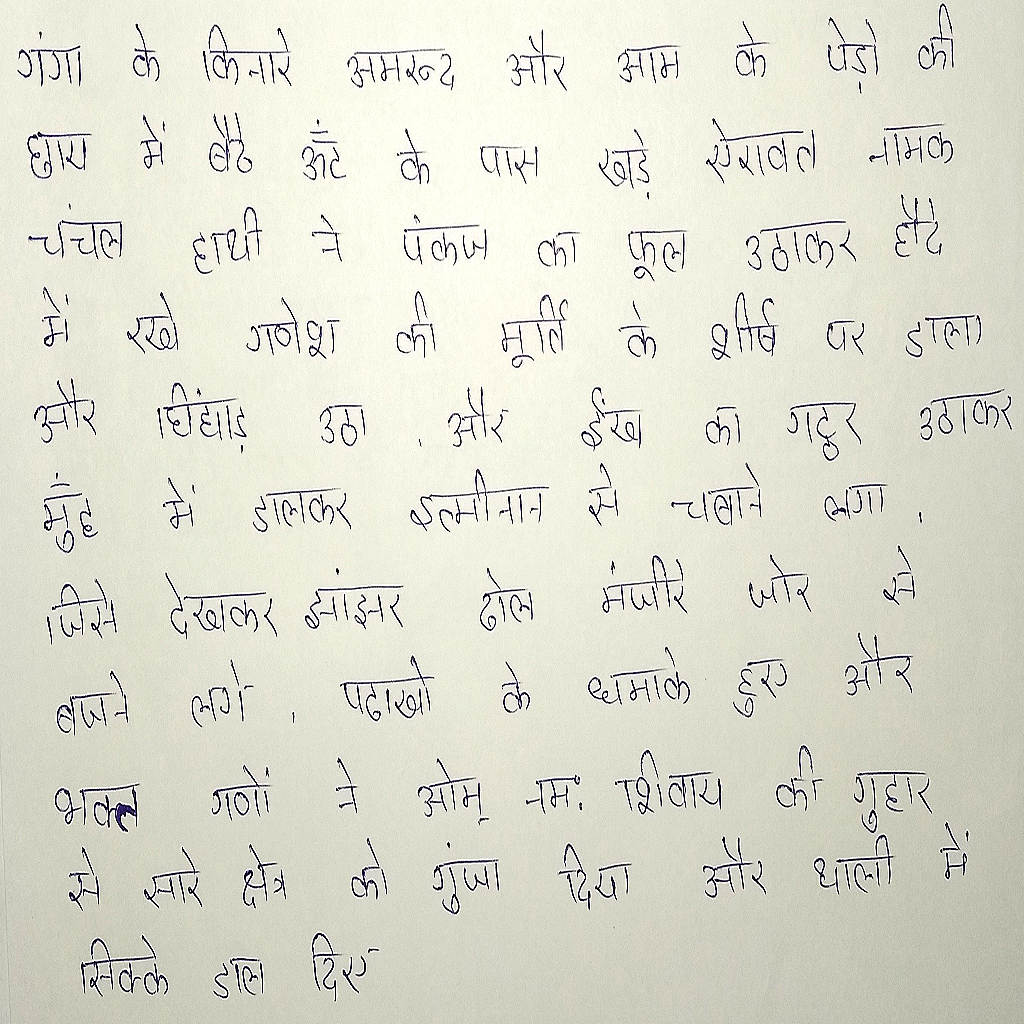 गंगा के किनारे अमरूद और आम के पेड़ो की
छाय में बैठे ऊँट के पास खड़े ऐरावत नामक
चंचल हाथी ने पंकज का फूल उठाकर हौदे
में रखे गणेश की मूर्ति के शीर्ष पर डाला
और चिंघाड़ उठा , और ईख का गट्ठर उठाकर
मुँह में डालकर इत्मीनान से चबाने लगा ,
जिसे देखकर झांझर ढोल मंजीरे जोर से
बजने लगे , पटाखो के धमाके हुए और
भक्त गणों ने ओम् नम: शिवाय की गुहार
से सारे क्षेत्र को गुंजा दिया और थाली में
सिक्के डाल दिए